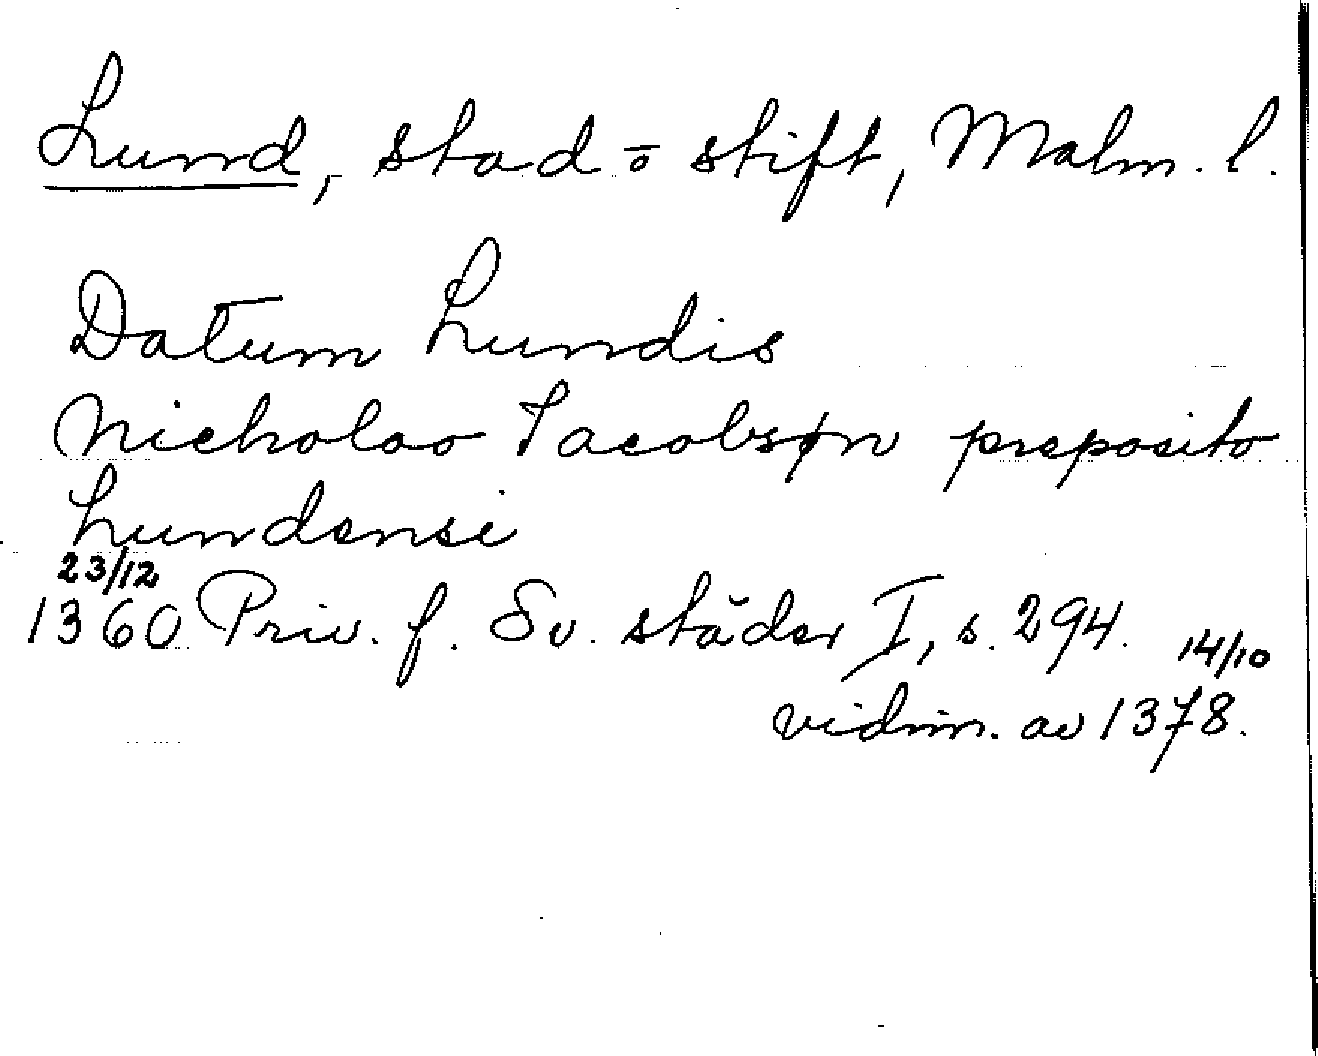 Lund, stad o stift, Malm. l.
Datum Lundis
Nicholao Iacobsøn preposito
Lundensi
23/12
1360 Priv. f. Sv. städer I, s. 294. 14/10
vidim. av 1378.